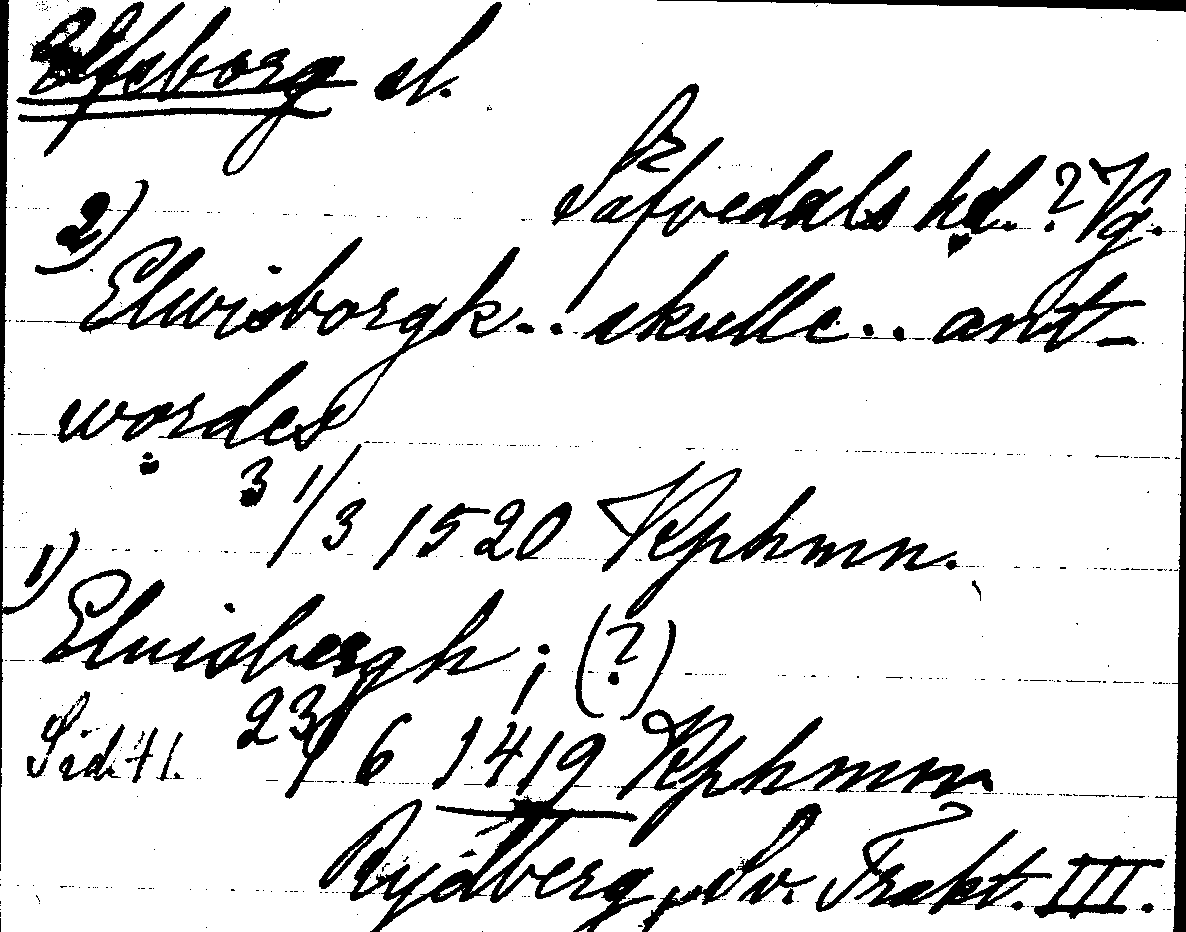 Elfsborg sl.
Säfvedals hd. ? Vg.
2)
Elwisborgk.. skulle.. ant-
wordes
31/3 1520 Kphmn.
1)
Eluisbergh ; (?)
Sid. 41. 23/6 1419 Kphmn
Rydberg, Sv. Trakt. III.